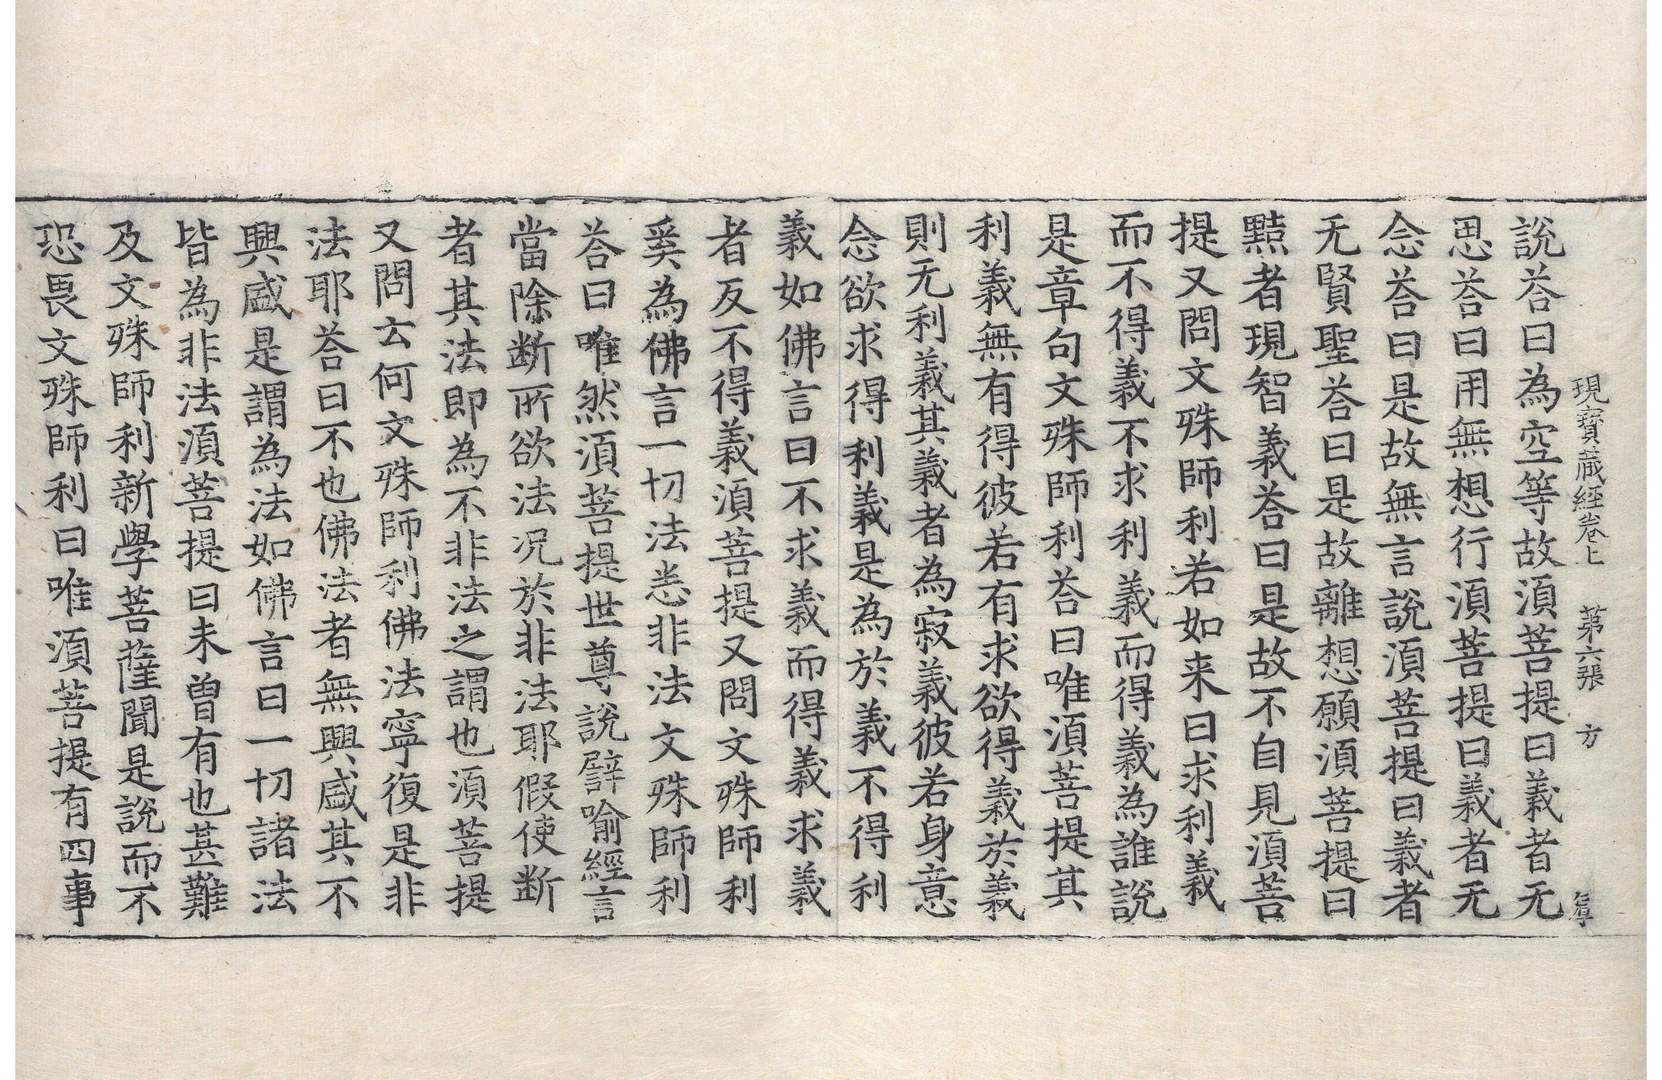 現寳藏經卷上 第六張 方
說荅曰為空等故湏菩提曰義者无
思荅曰用無想行湏菩提曰義者无
念荅曰是故無言說湏菩提曰義者
无賢聖荅曰是故離想願湏菩提曰
黠者現智義荅曰是故不自見湏菩
提又問文殊師利若如来曰求利義
而不得義不求利義而得義為誰說
是章句文殊師利荅曰唯湏菩提其
利義無有得彼若有求欲得義於義
則无利義其義者為寂義彼若身意
念欲求得利義是為於義不得利
義如佛言曰不求義而得義求義
者反不得義湏菩提又問文殊師利
奚為佛言一切法恙非法文殊師利
荅曰唯然湏菩提世尊說譬喻經言
當除断所欲法况於非法耶假使断
者其法即為不非法之謂也湏菩提
又問云何文殊師利佛法寧復是非
法耶荅曰不也佛法者無興盛其不
興盛是謂為法如佛言曰一切諸法
皆為非法湏菩提曰未曾有也甚難
及文殊師利新學菩薩聞是說而不
恐畏文殊師利曰唯湏菩提有四事